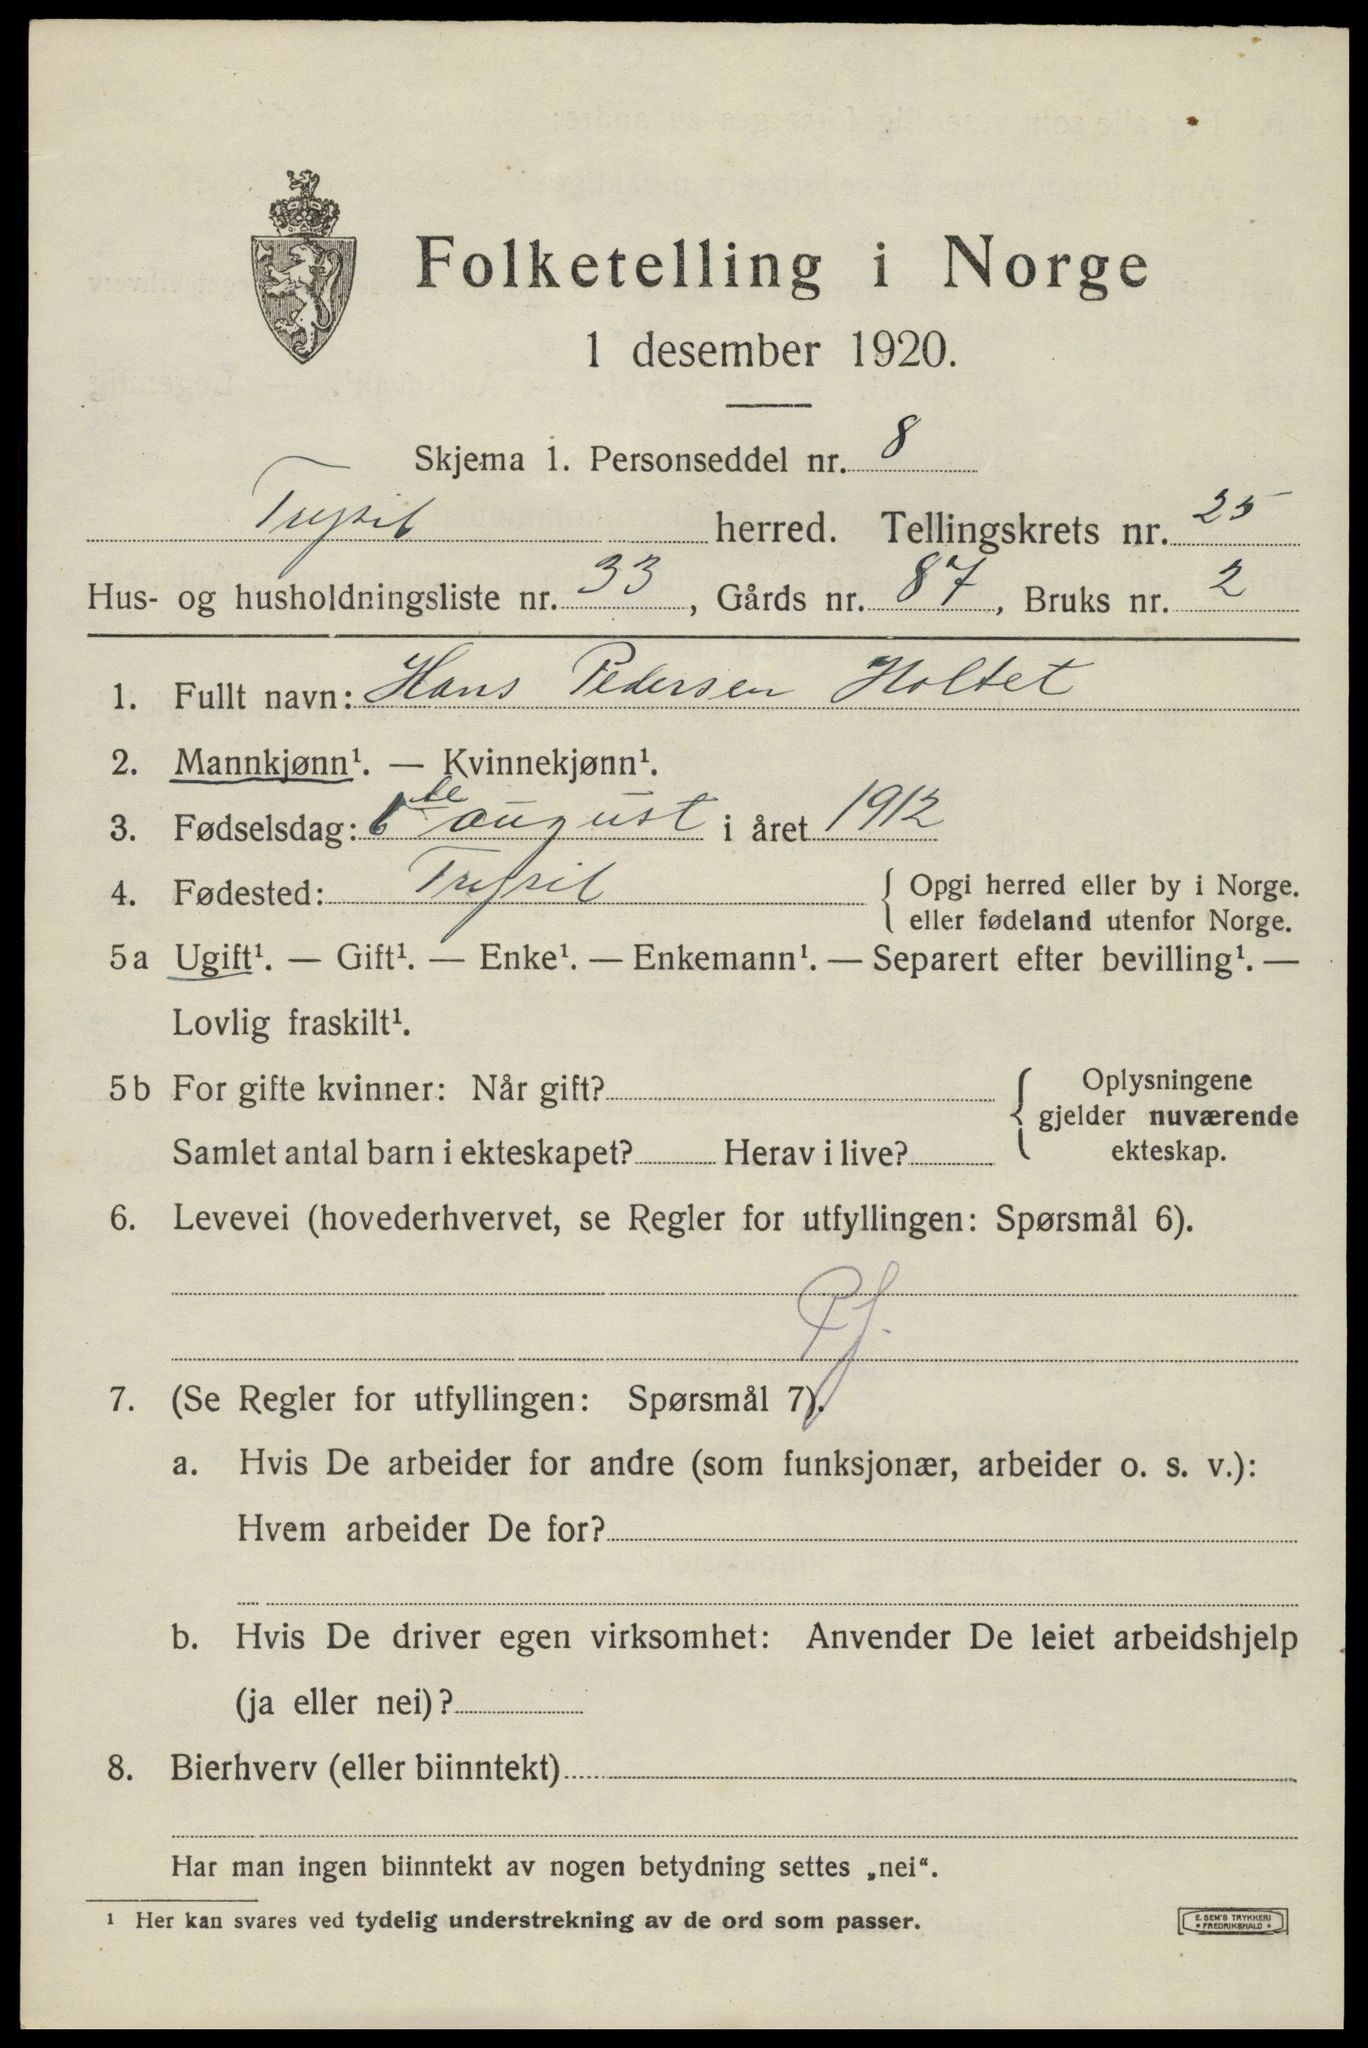 Folketelling i Norge
1 desember 1920.
Skjema 1. Personseddel nr. 8
Trysil herred. Tellingskrets nr. 25
Hus- og husholdningsliste nr. 33, Gårds nr. 87, Bruks nr. 2
1. Fullt navn: Hans Pedersen Holtet
2. Mannkjønn¹. — Kvinnekjønn¹.
3. Fødselsdag: 6te august i året 1912
4. Fødested: Trysil { Opgi herred eller by i Norge.
eller fødeland utenfor Norge.
5a Ugift¹. — Gift¹. — Enke¹. — Enkemann¹. — Separert efter bevilling¹. —
Lovlig fraskilt¹.
5b For gifte kvinner: Når gift? { Oplysningene
gjelder nuværende
Samlet antal barn i ekteskapet? Herav i live? ekteskap.
6. Levevei (hovederhvervet, se Regler for utfyllingen: Spørsmål 6).
7. (Se Regler for utfyllingen: Spørsmål 7).
a. Hvis De arbeider for andre (som funksjonær, arbeider o. s. v.):
Hvem arbeider De for?
b. Hvis De driver egen virksomhet: Anvender De leiet arbeidshjelp
(ja eller nei)?
8. Bierhverv (eller biinntekt)
Har man ingen biinntekt av nogen betydning settes „nei“.
¹ Her kan svares ved tydelig understrekning av de ord som passer.
E. SEM'S TRYKKERI
* FREDRIKSHALD *